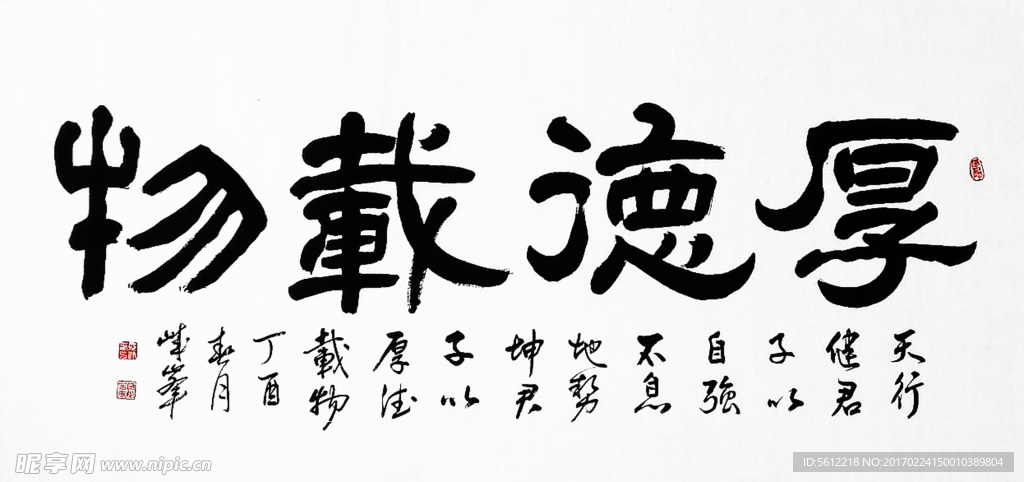 厚德載物
天行
健君
子以
自強
不息
地勢
坤君
子以
厚德
載物
丁酉
春月
成峯
昵享网 www.nipic.cn
ID:5612218 NO:20170224150010389804